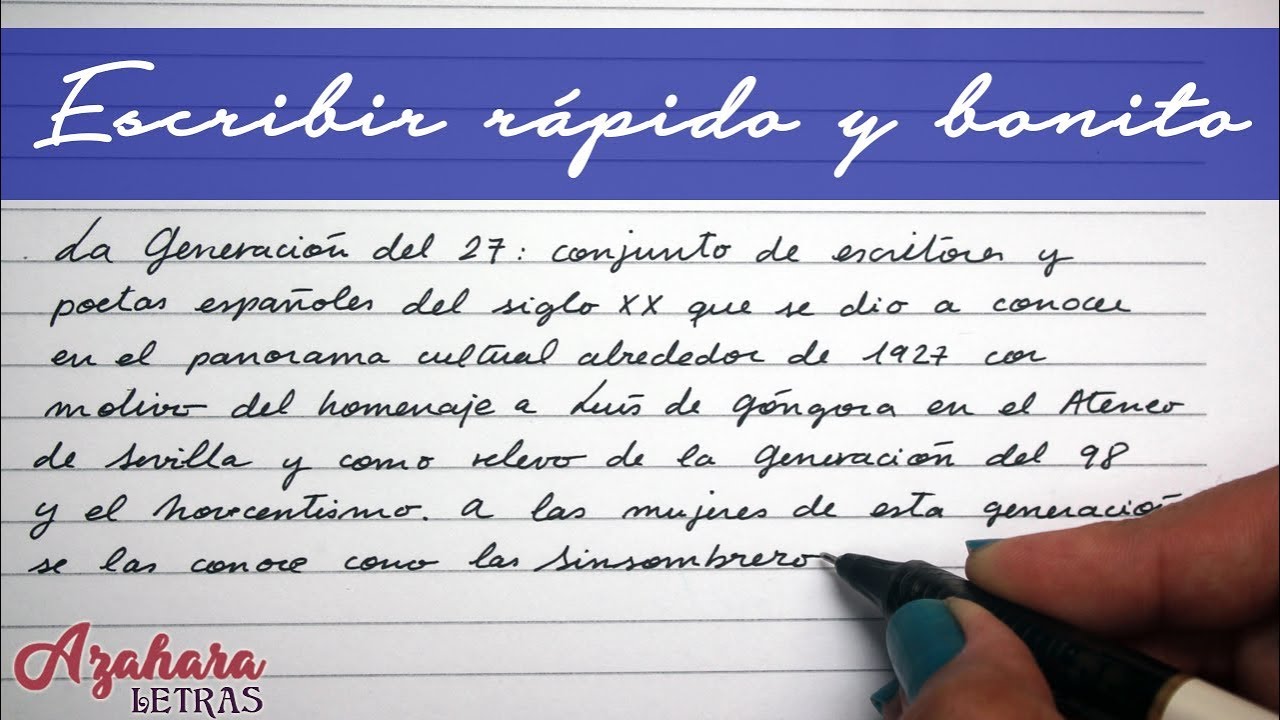 Escribir rápido y bonito
La Generación del 27: conjunto de escritores y
poetas españoles del siglo XX que se dio a conocer
en el panorama cultural alrededor de 1927 con
motivo del homenaje a Luis de Góngora en el Ateneo
de Sevilla y como relevo de la generación del 98
y el novecentismo. A las mujeres de esta generación
se las conoce como las Sinsombrero
Azahara
LETRAS